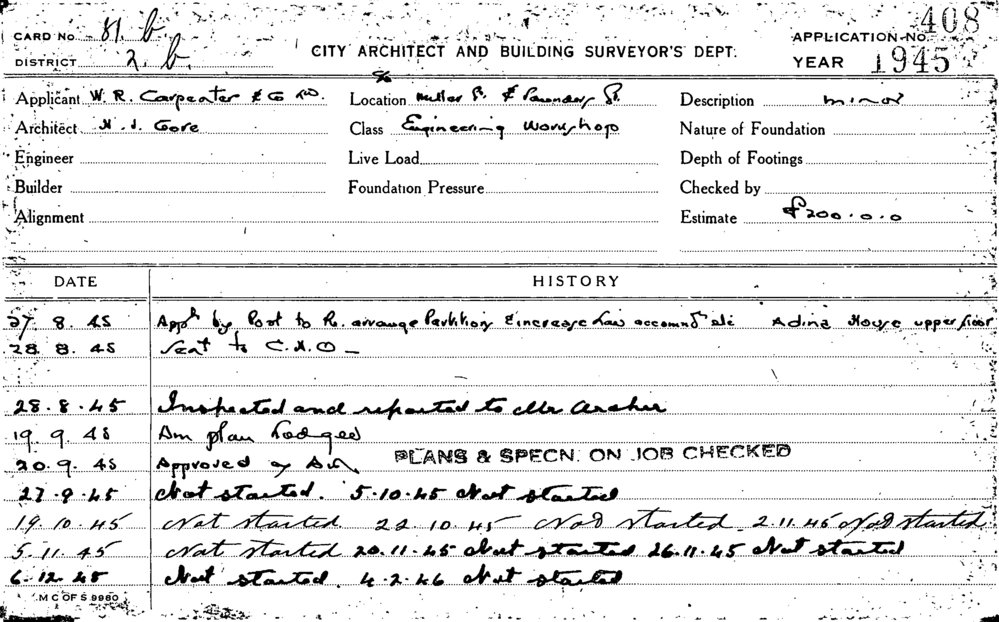 CARD No 81. b.
APPLICATION-NO. 408
DISTRICT 2. b.
CITY ARCHITECT AND BUILDING SURVEYOR'S DEPT.
YEAR 1945
Applicant W. R. Carpenter & Co LD.
Location Miller St. & Saunders St.
Description minor
Architect N. J. Gore
Class Engineering Workshop
Nature of Foundation
Engineer
Live Load
Depth of Footings
Builder
Foundation Pressure
Checked by
Alignment
Estimate £200.0.0
DATE HISTORY
27. 8. 45 by Post to Re. arrange Partition & increase Lav accommd etc Adina House upper floor
28. 8. 45 Sent to C.H.O -
28.8.45 Inspected and reported to Mr Archer
19. 9. 45 Am plan Lodged
20.9. 45 Approved PLANS & SPECN. ON JOB CHECKED
27.9.45 Not started. 5.10.45 Not started
19.10.45 Not started 22.10.45 Not started 2.11.45 Not started
5.11.45 Not started 20.11.45 Not started 26.11.45 Not started
6.12.45 Not started. 4.2.46 Not started
M C OF S 9980